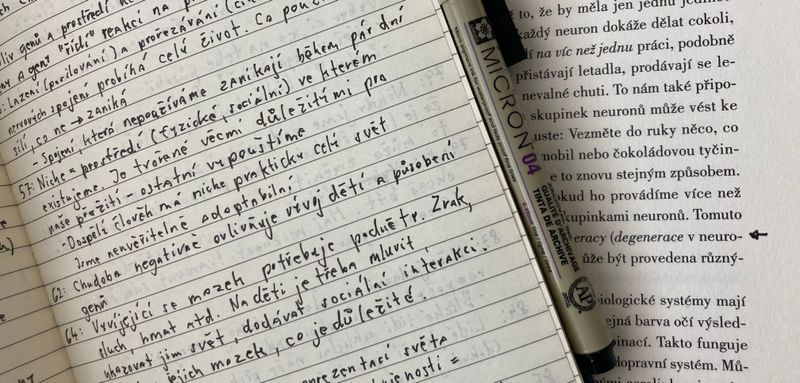 liv genů a prostředí ne
ny a gent "řídí" reakci na p
: Ladění (posilování) a prořezávání (
nervových spojení probíhá celý život. Co použ
sílí, co ne → zaniká
- Spojení, která nepoužíváme zanikají během pár dní
57: Niche = prostředí (fyzické, sociální) ve kterém
existujeme. Je tvořené věcmi důležitými pro
naše přežití - ostatní vypouštíme
- Dospělí člověk má niche prakticky celý svět
Jsme neuvěřitelně adaptabilní
62: Chudoba negativně ovlivňuje vývoj dětí a působení
genů
64: Vyvíjející se mozek potřebuje podněty. Zrak,
sluch, hmat atd. Na děti je třeba mluvit,
ukazovat jim svět, dodávat sociální interakci.
jejich mozek, co je důležité.
prezentací světa
MICRON 04
QUALITÉ D'ARCHIVAGE
TINTA DE ARCHIVE
AP
to, že by měla jen jednu jedinou
každý neuron dokáže dělat cokoli,
dí na víc než jednu práci, podobně
přistávají letadla, prodávají se le-
nevalné chuti. To nám také připo-
skupinek neuronů může vést ke
uste: Vezměte do ruky něco, co
mobil nebo čokoládovou tyčin-
e to znovu stejným způsobem.
okud ho provádíme více než
kupinkami neuronů. Tomuto
eracy (degenerace v neuro-
ůže být provedena různý-
iologické systémy mají
ejná barva očí výsled-
binací. Takto funguje
dopravní systém. Mů-